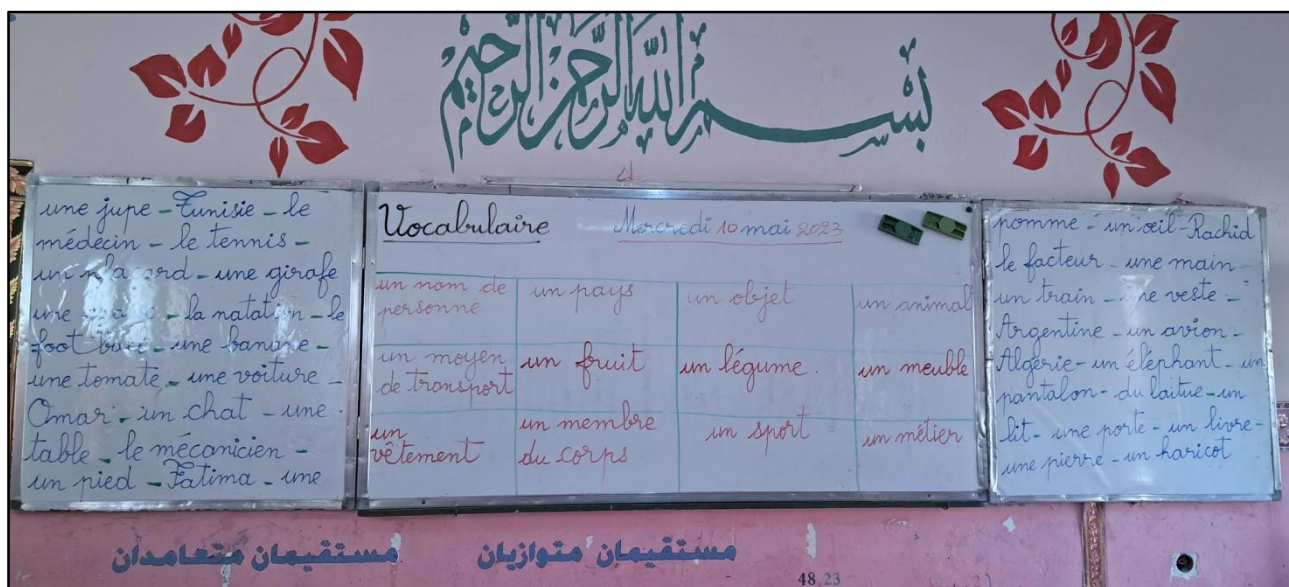 بسم الله الرحمن الرحيم
une jupe - Tunisie - le
médecin - le tennis -
un placard - une girafe
une - la natation - le
foot-ball - une banane -
une tomate - une voiture -
Omar - un chat - une
table - le mécanicien -
un pied - Fatima - une
Vocabulaire Mercredi 10 mai 2023
un nom de personne un pays un objet un animal
un moyen de transport un fruit un légume. un meuble
un vêtement un membre du corps un sport un métier
pomme - un œil - Rachid
le facteur - une main -
un train - une veste -
Argentine - un avion -
Algérie - un éléphant - un
pantalon - du laitue - un
lit - une porte - un livre -
une pierre - un haricot
مستقيمان متعامدان مستقيمان متوازيان
48,23